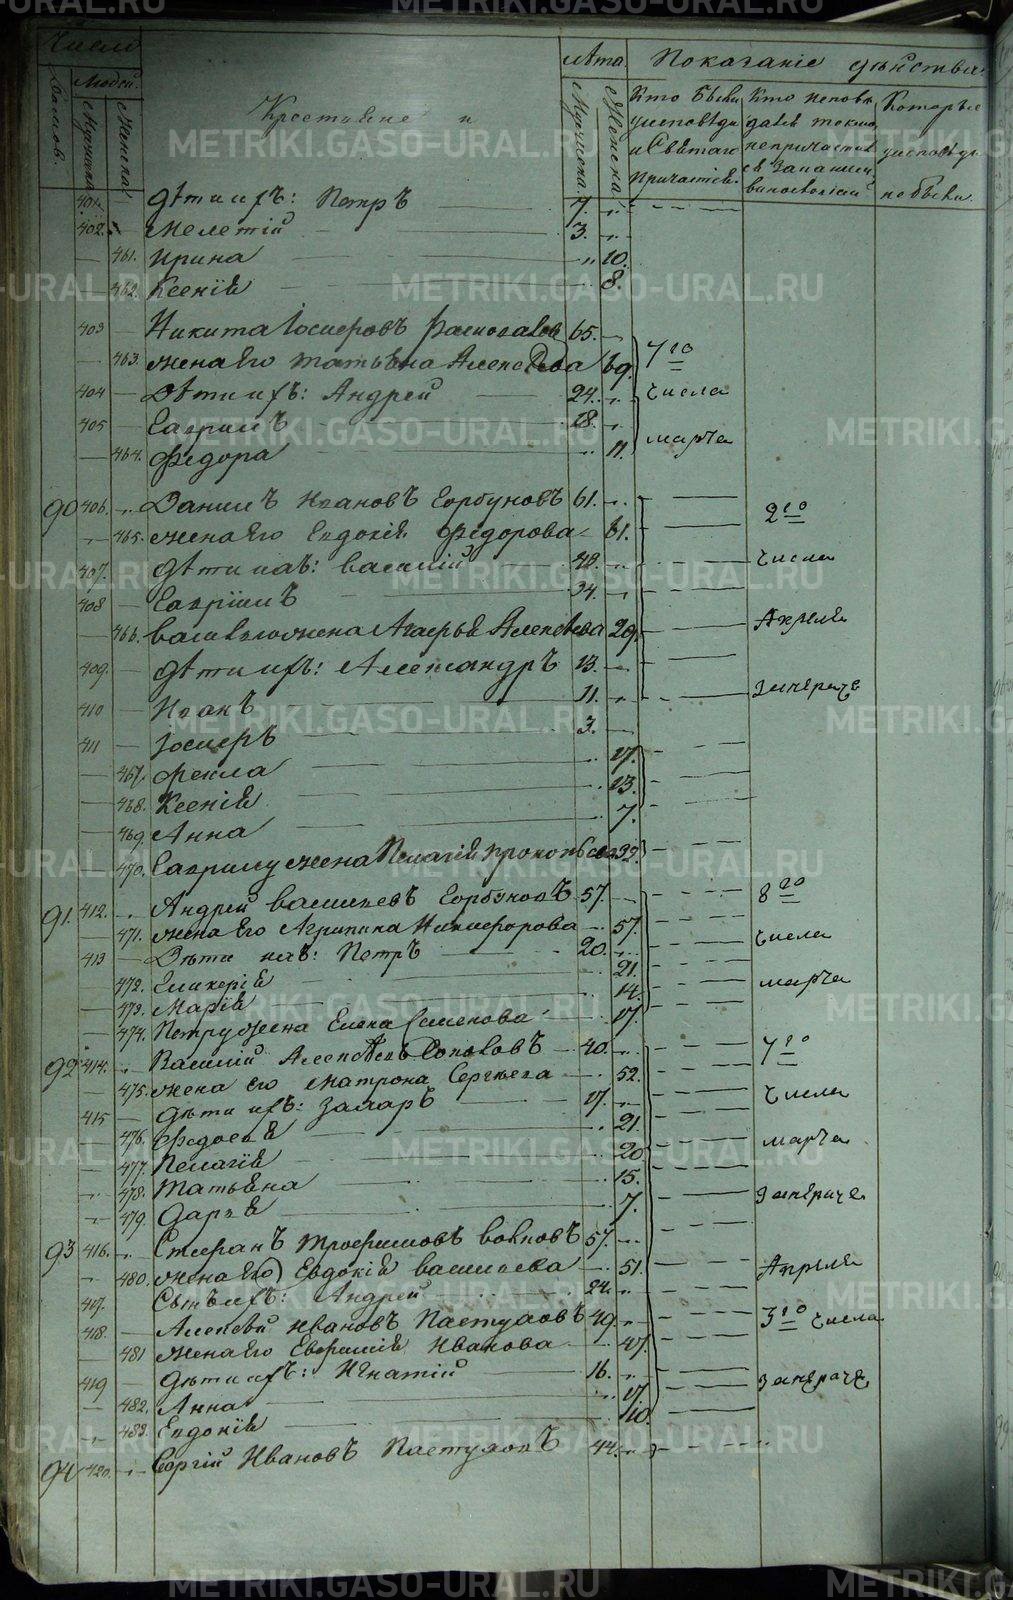 Число
Лѣта
Показанiе дѣйства
Домовъ.
Людей.
Мужеска
Женска
Крестьяне и
Мужеска.
Женска
Кто были у исповѣди и Святаго Причастiя.
Кто исповѣдался токмо, непричастился
Которые у исповѣди не были.
401. Дѣти ихъ: Петръ 7.
402. Мелетiй 3.
461. Ирина 10.
462. Ксенiя 8.
403 Никита Iосифовъ 65.
463. жена его Татьяна Алексѣева 69.
404 Дѣти ихъ: Андрей 24.
405 Гаврiилъ 18.
464. Федора 11.
7го числа марта
90 406. Данiилъ Ивановъ Горбуновъ 61.
465. жена его Евдокiя Федорова 61.
407. Дѣти ихъ: Василiй
408 Гаврiилъ 34.
466. Алексѣева 29.
409. Дѣти ихъ: Александръ 13.
410 Иванъ 11.
411 Iосифъ 3.
467. Фекла 17.
468. Ксенiя 13.
469. Анна 7.
470. Гаврилу жена Пелагiя Прокопьева 33.
2го числа Апреля
91. 412. Андрей Васильевъ Горбуновъ 57.
471. жена его Агрипина Никифорова 57.
413 Дѣти ихъ: Петръ 20.
472. Гликерiя 21.
473. Марiя 14.
474. Петру жена Елена Семенова 17.
8го числа марта
92 414. Василiй Алексѣевъ 40.
475. жена его Матрона Сергѣева 52.
415 Дѣти ихъ: Захаръ 17.
476. Федосья 21.
477. Пелагiя 20
478. Татьяна 15.
479. Дарья 7.
7го числа марта
93 416. Стефанъ Трофимовъ Волковъ 57.
480. жена его Евдокiя Васильева 51.
417. Сынъ ихъ: Андрей 24.
418. Алексѣй Ивановъ Пастуховъ 49.
481 жена его Евфимiя Иванова 47.
419 Дѣти ихъ: Игнатiй 16.
482. Анна 17.
483. Евдокiя 10.
Апреля 3го числа
94 420. Сергiй Ивановъ Пастуховъ 44.
METRIKI.GASO-URAL.RU